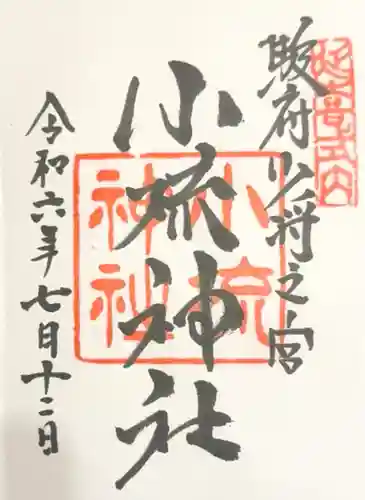 駿府少将之宮
延喜式内
小梳神社
小梳神社
令和六年七月十二日